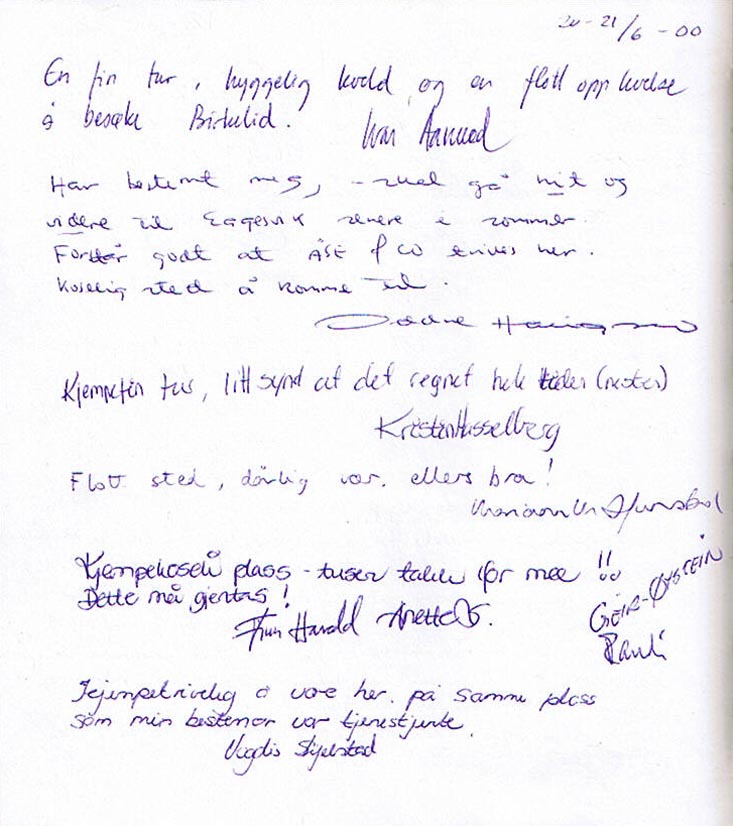 20-21/6 - 00
En fin tur, hyggelig kveld og en flott opplevelse
å besøke Birkelid. Ivar Aanerød
Har bestemt meg, - skal gå hit og
videre til Eggesvik senere i sommer.
Forstår godt at ÅSE & CO trives her.
Koselig sted å komme til.
Kjempefin tur, litt synd at det regnet hele tiden (nesten)
Kristin Hasselberg
Flott sted, dårlig vær, ellers bra!
Kjempekoseli plass - tusen takk for mæ !!
Dette må gjentas!
Finn Harald Anette
GEIR-ØYSTEIN
Randi
Kjempetrivelig å være her. på samme plass
som min bestemor var tjenestjente.
Vigdis